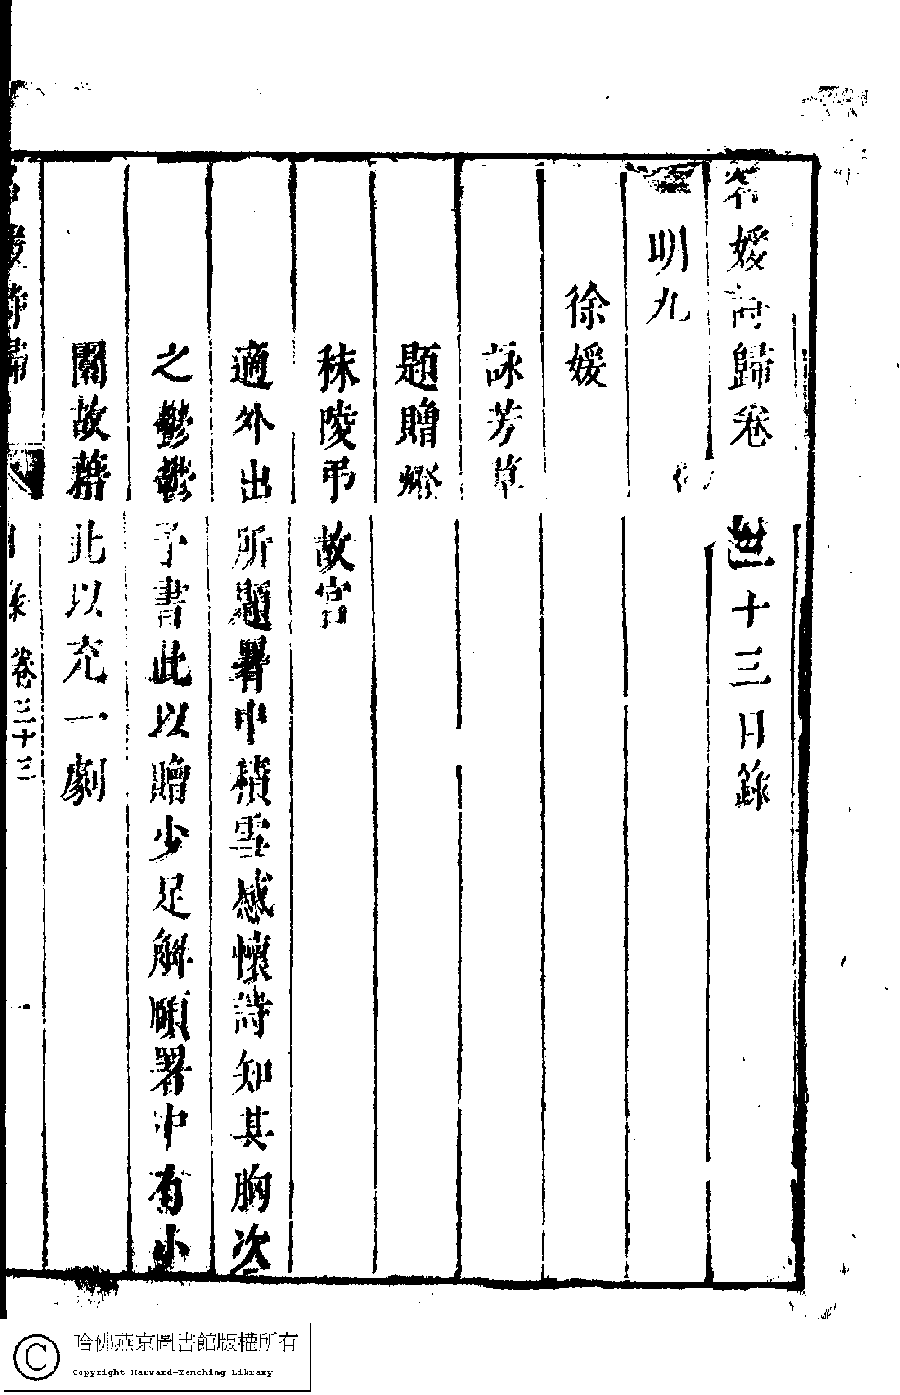 名媛詩歸卷三十三目錄
明九
徐媛
詠芳草
題贈
秣陵弔故宮
適外出所題署中積雪感懷詩知其胸次
之鬱鬱予書此以贈少足解頤署中有小
鬮故藉此以充一劇
名媛詩歸
目錄 卷三十三
一
哈佛燕京圖書館版權所有
Copyright Harvard-Yenching Library